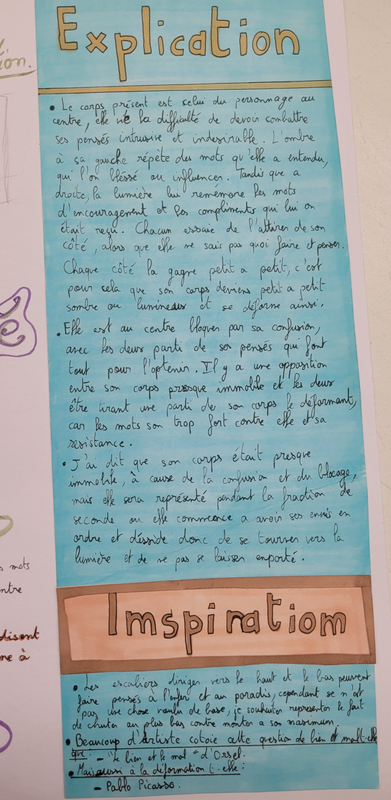 Explication
• Le corps présent est selui du personnage au
centre, elle vie la difficulté de devoir combattre
ses pensés intrusive et indesirable. L'ombre
à sa gauche repète des mots qu'elle a entendu,
qui l'on bléssé ou influencer. Tandis que a
droite, la lumière lui remémore les mots
d'encouragement et les compliments qui lui on
était reçu. Chacun essaie de l'attirer de son
côté, alors que elle ne sais pas quoi faire et penser.
Chaque côté la gagne petit a petit, c'est
pour cela que son corps deviens petit a petit
sombre ou lumineux et se déforme ainsi.
• Elle est au centre bloquer par sa confusion,
avec les deux parti de ses pensés qui font
tout pour l'optenir. Il y a une opposition
entre son corps presque immobile et les deux
être tirant une parti de son corps le déformant,
car les mots son trop fort contre elle et sa
resistance.
• J'ai dit que son corps était presque
immobile, à cause de la confusion et du blocage,
mais elle sera représenté pendant la fraction de
seconde ou elle commence a avoir ses envis en
ordre et désside donc de se tourner vers la
lumière et de ne pas se laisser emporté.
Inspiration
• Les escaliers diriger vers le haut et le bas peuvent
faire pensés à l'enfer et au paradis, cependant se n'est
pas une chose voulu de base, je souhaiter représenter le fait
de chuter au plus bas contre monter a son maximum.
• Beaucoup d'artiste cotoie cette question de bien et mal telle
que : - "le bien et le mal" d'Orsel.
• Mais aussi à la déformation telle :
- Pablo Picasso.
on.
mots
ntre
disent
à